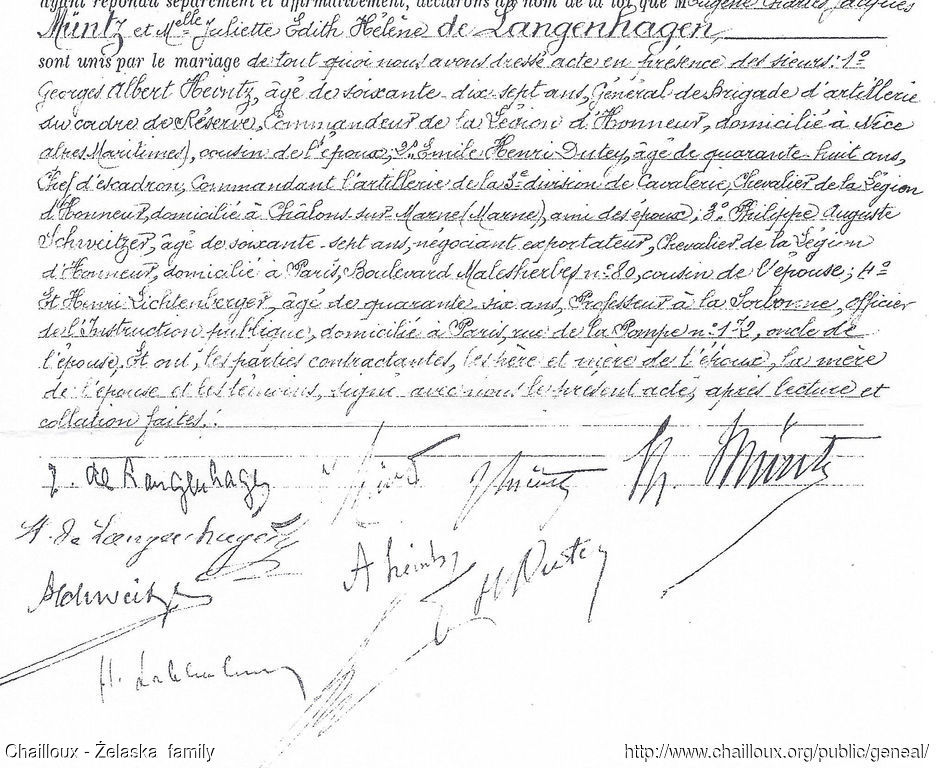 ayant répondu séparément et affirmativement, déclarons au nom de la loi, que M Eugène Charles Jacques
Müntz et Melle Juliette Edith Hélène de Langenhagen,
sont unis par le mariage de tout quoi nous avons dressé acte en présence des sieurs: 1º
Georges Albert Heintz, âgé de soixante-dix-sept ans, Général de Brigade d'artillerie
du cadre de Réserve, Commandeur de la Légion d'Honneur, domicilié à Nice
(Alpes Maritimes), cousin de l'époux; 2º Emile Henri Dutey, âgé de quarante-huit ans,
Chef d'escadron, Commandant l'artillerie de la 5e division de Cavalerie, Chevalier de la Légion
d'Honneur, domicilié à Châlons-sur-Marne (Marne), ami des époux; 3º Philippe Auguste
Schweitzer, âgé de soixante-sept ans, négociant exportateur, Chevalier de la Légion
d'Honneur, domicilié à Paris, Boulevard Malesherbes nº 80, cousin de l'épouse; 4º
Et Henri Lichtenberger, âgé de quarante six ans, Professeur à la Sorbonne, officier
de l'Instruction publique, domicilié à Paris, rue de la Pompe nº 172, oncle de
l'épouse. Et ont, les parties contractantes, les père et mère de l'époux, la mère
de l'épouse et les témoins, signé avec nous le présent acte, après lecture et
collation faites.:
J. de Langenhagen Müntz Müntz Müntz
de Langenhagen
A Heintz H Dutey
ASchweitzer
H. Lichtenberger
Chailloux - Żelaska family http://www.chailloux.org/public/geneal/